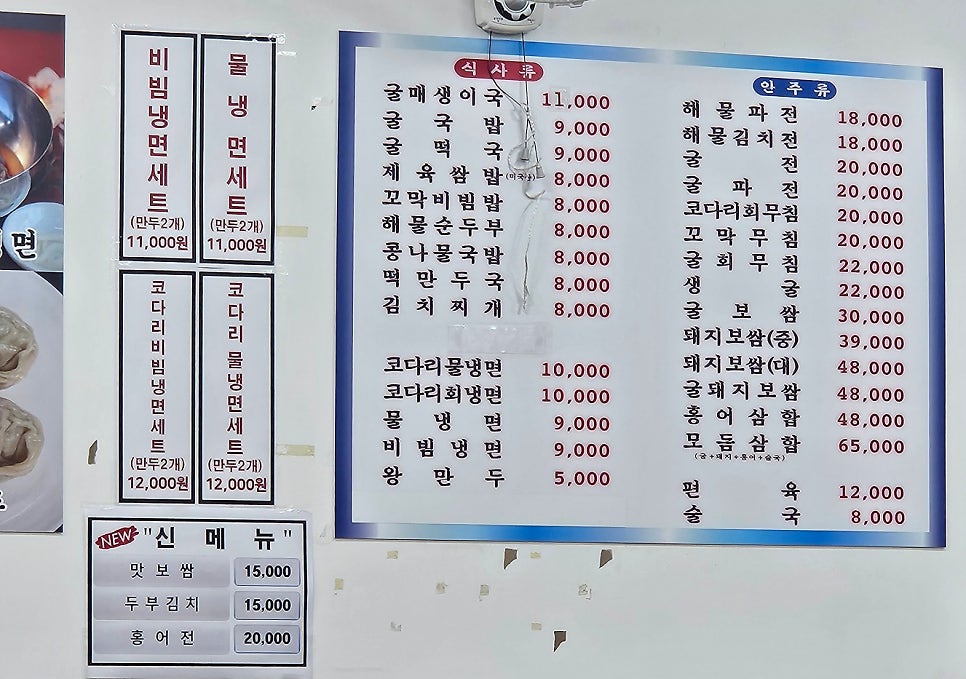 면
비빔냉면세트
(만두2개)
11,000원
물냉면세트
(만두2개)
11,000원
코다리비빔냉면세트
(만두2개)
12,000원
코다리물냉면세트
(만두2개)
12,000원
NEW "신 메 뉴"
맛보쌈 15,000
두부김치 15,000
홍어전 20,000
식사류
굴매생이국 11,000
굴국밥 9,000
굴떡국 9,000
제육쌈밥(미국산) 8,000
꼬막비빔밥 8,000
해물순두부 8,000
콩나물국밥 8,000
떡만두국 8,000
김치찌개 8,000
코다리물냉면 10,000
코다리회냉면 10,000
물냉면 9,000
비빔냉면 9,000
왕만두 5,000
안주류
해물파전 18,000
해물김치전 18,000
굴전 20,000
굴파전 20,000
코다리회무침 20,000
꼬막무침 20,000
굴회무침 22,000
생굴 22,000
굴보쌈 30,000
돼지보쌈(중) 39,000
돼지보쌈(대) 48,000
굴돼지보쌈 48,000
홍어삼합 48,000
모둠삼합 65,000
(굴+돼지+홍어+술국)
편육 12,000
술국 8,000